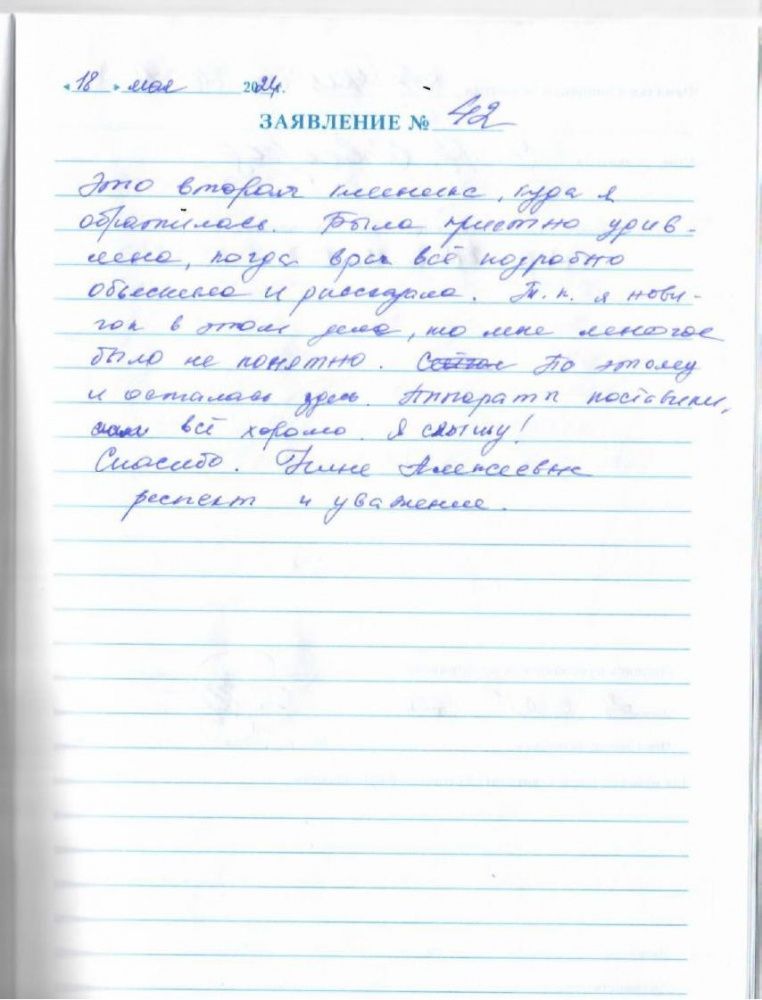 «18» мая 2024г.
ЗАЯВЛЕНИЕ № 42
Это вторая клиника, куда я
обратилась. Была приятно удив-
лена, когда врач всё подробно
объяснила и рассказала. Т.к. я нови-
чок в этом деле, то мне многое
было не понятно. По этому
и осталась здесь. Аппараты поставили,
всё хорошо. Я слышу!
Спасибо. Алексеевне
респект и уважение.